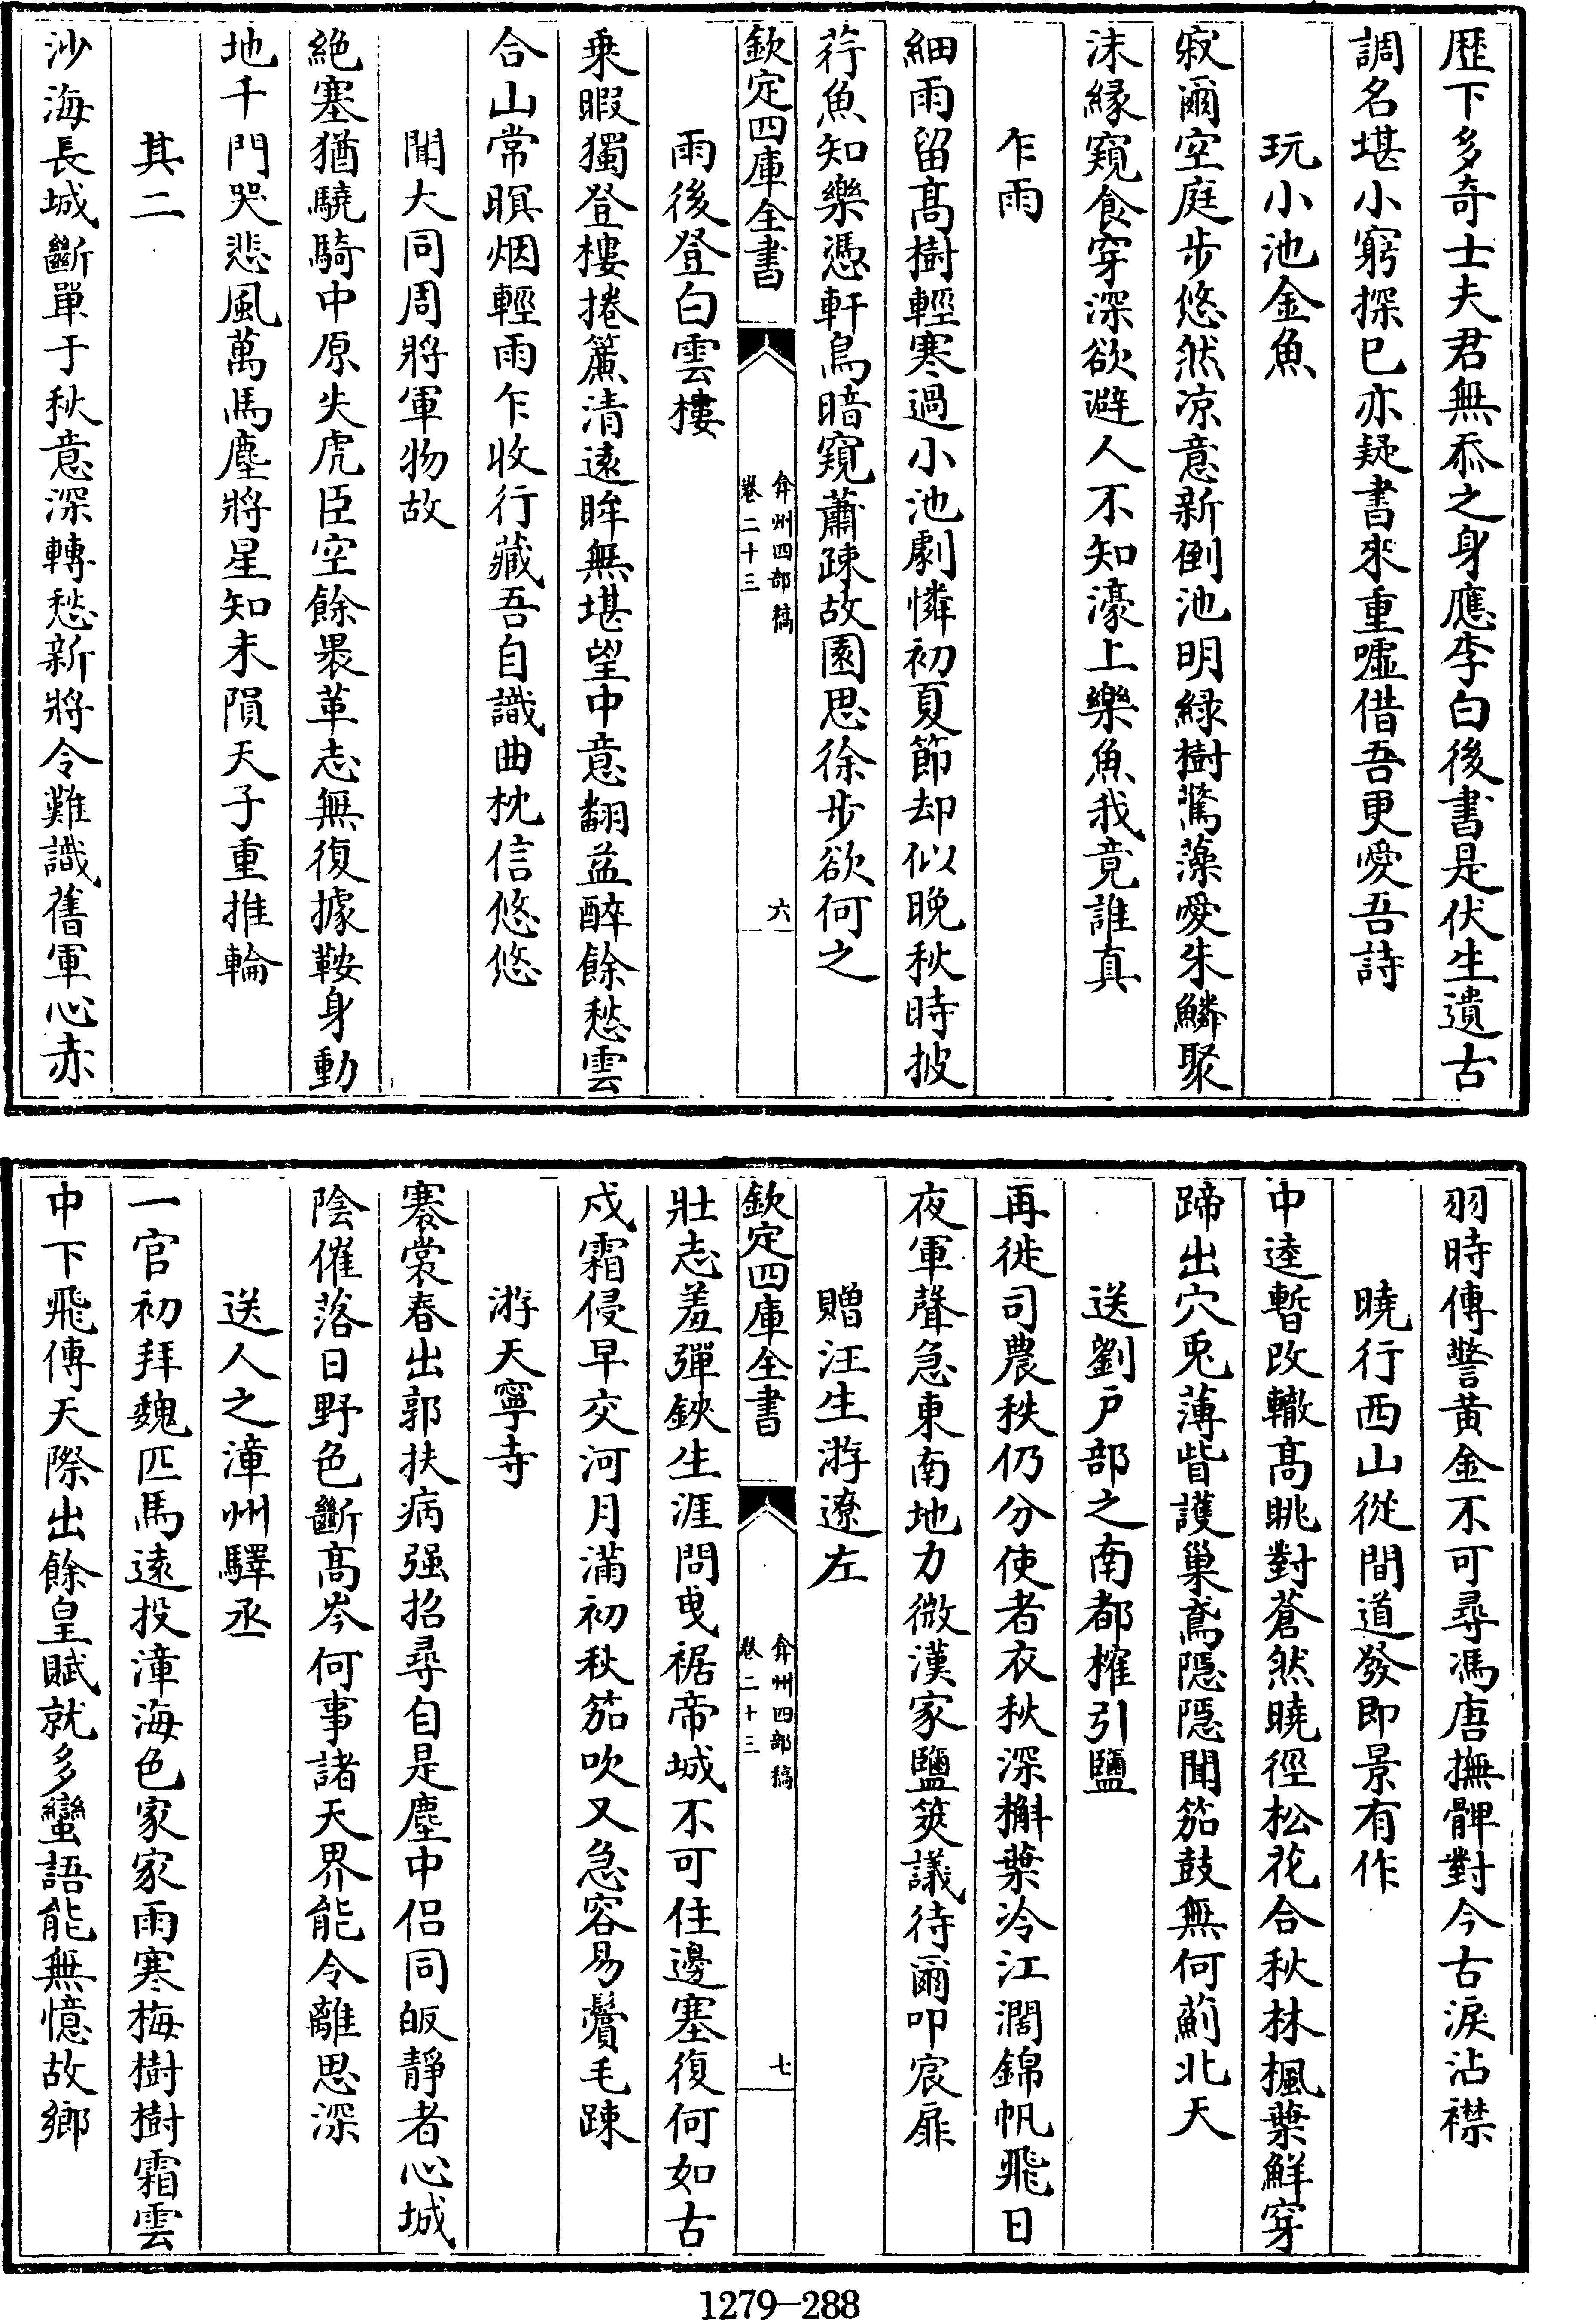 歴下多奇士夫君無忝之身應李白後書是伏生遺古
調名堪小窮探已亦疑書來重嘘借吾更愛吾詩
玩小池金魚
寂爾空庭步悠然凉意新倒池明緑樹驚藻愛朱鱗聚
沫緣窺食穿深欲避人不知濠上樂魚我竟誰真
乍雨
細雨留髙樹輕寒過小池劇憐初夏節却似晚秋時披
荇魚知樂憑軒鳥暗窺蕭疎故園思徐步欲何之
欽定四庫全書
弇州四部稿
卷二十三
六
雨後登白雲樓
乗暇獨登樓捲簾清遠眸無堪望中意翻益醉餘愁雲
合山常暝烟輕雨乍收行藏吾自識曲枕信悠悠
聞大同周將軍物故
絶塞猶驍騎中原失虎臣空餘裹革志無復據鞍身動
地千門哭悲風萬馬塵將星知未隕天子重推輪
其二
沙海長城斷單于秋意深轉愁新將令難識舊軍心赤
羽時傳警黄金不可尋馮唐撫髀對今古淚沾襟
曉行西山從間道發即景有作
中逵暫改轍髙眺對蒼然曉徑松花合秋林楓葉鮮穿
蹄出穴兎薄眥護巢鳶隠隠聞笳鼓無何薊北天
送劉户部之南都榷引鹽
再徙司農秩仍分使者衣秋深槲葉冷江濶錦帆飛日
夜軍聲急東南地力微漢家鹽筴議待爾叩宸扉
贈汪生游遼左
欽定四庫全書
弇州四部稿
卷二十三
七
壯志羞彈鋏生涯問曵裾帝城不可住邊塞復何如古
戍霜侵早交河月滿初秋笳吹又急容易鬢毛踈
游天寧寺
褰裳春出郭扶病强招尋自是塵中侣同皈靜者心城
陰催落日野色斷髙岑何事諸天界能令離思深
送人之漳州驛丞
一官初拜魏匹馬遠投漳海色家家雨寒梅樹樹霜雲
中下飛傳天際出餘皇賦就多蠻語能無憶故鄉
1279—288